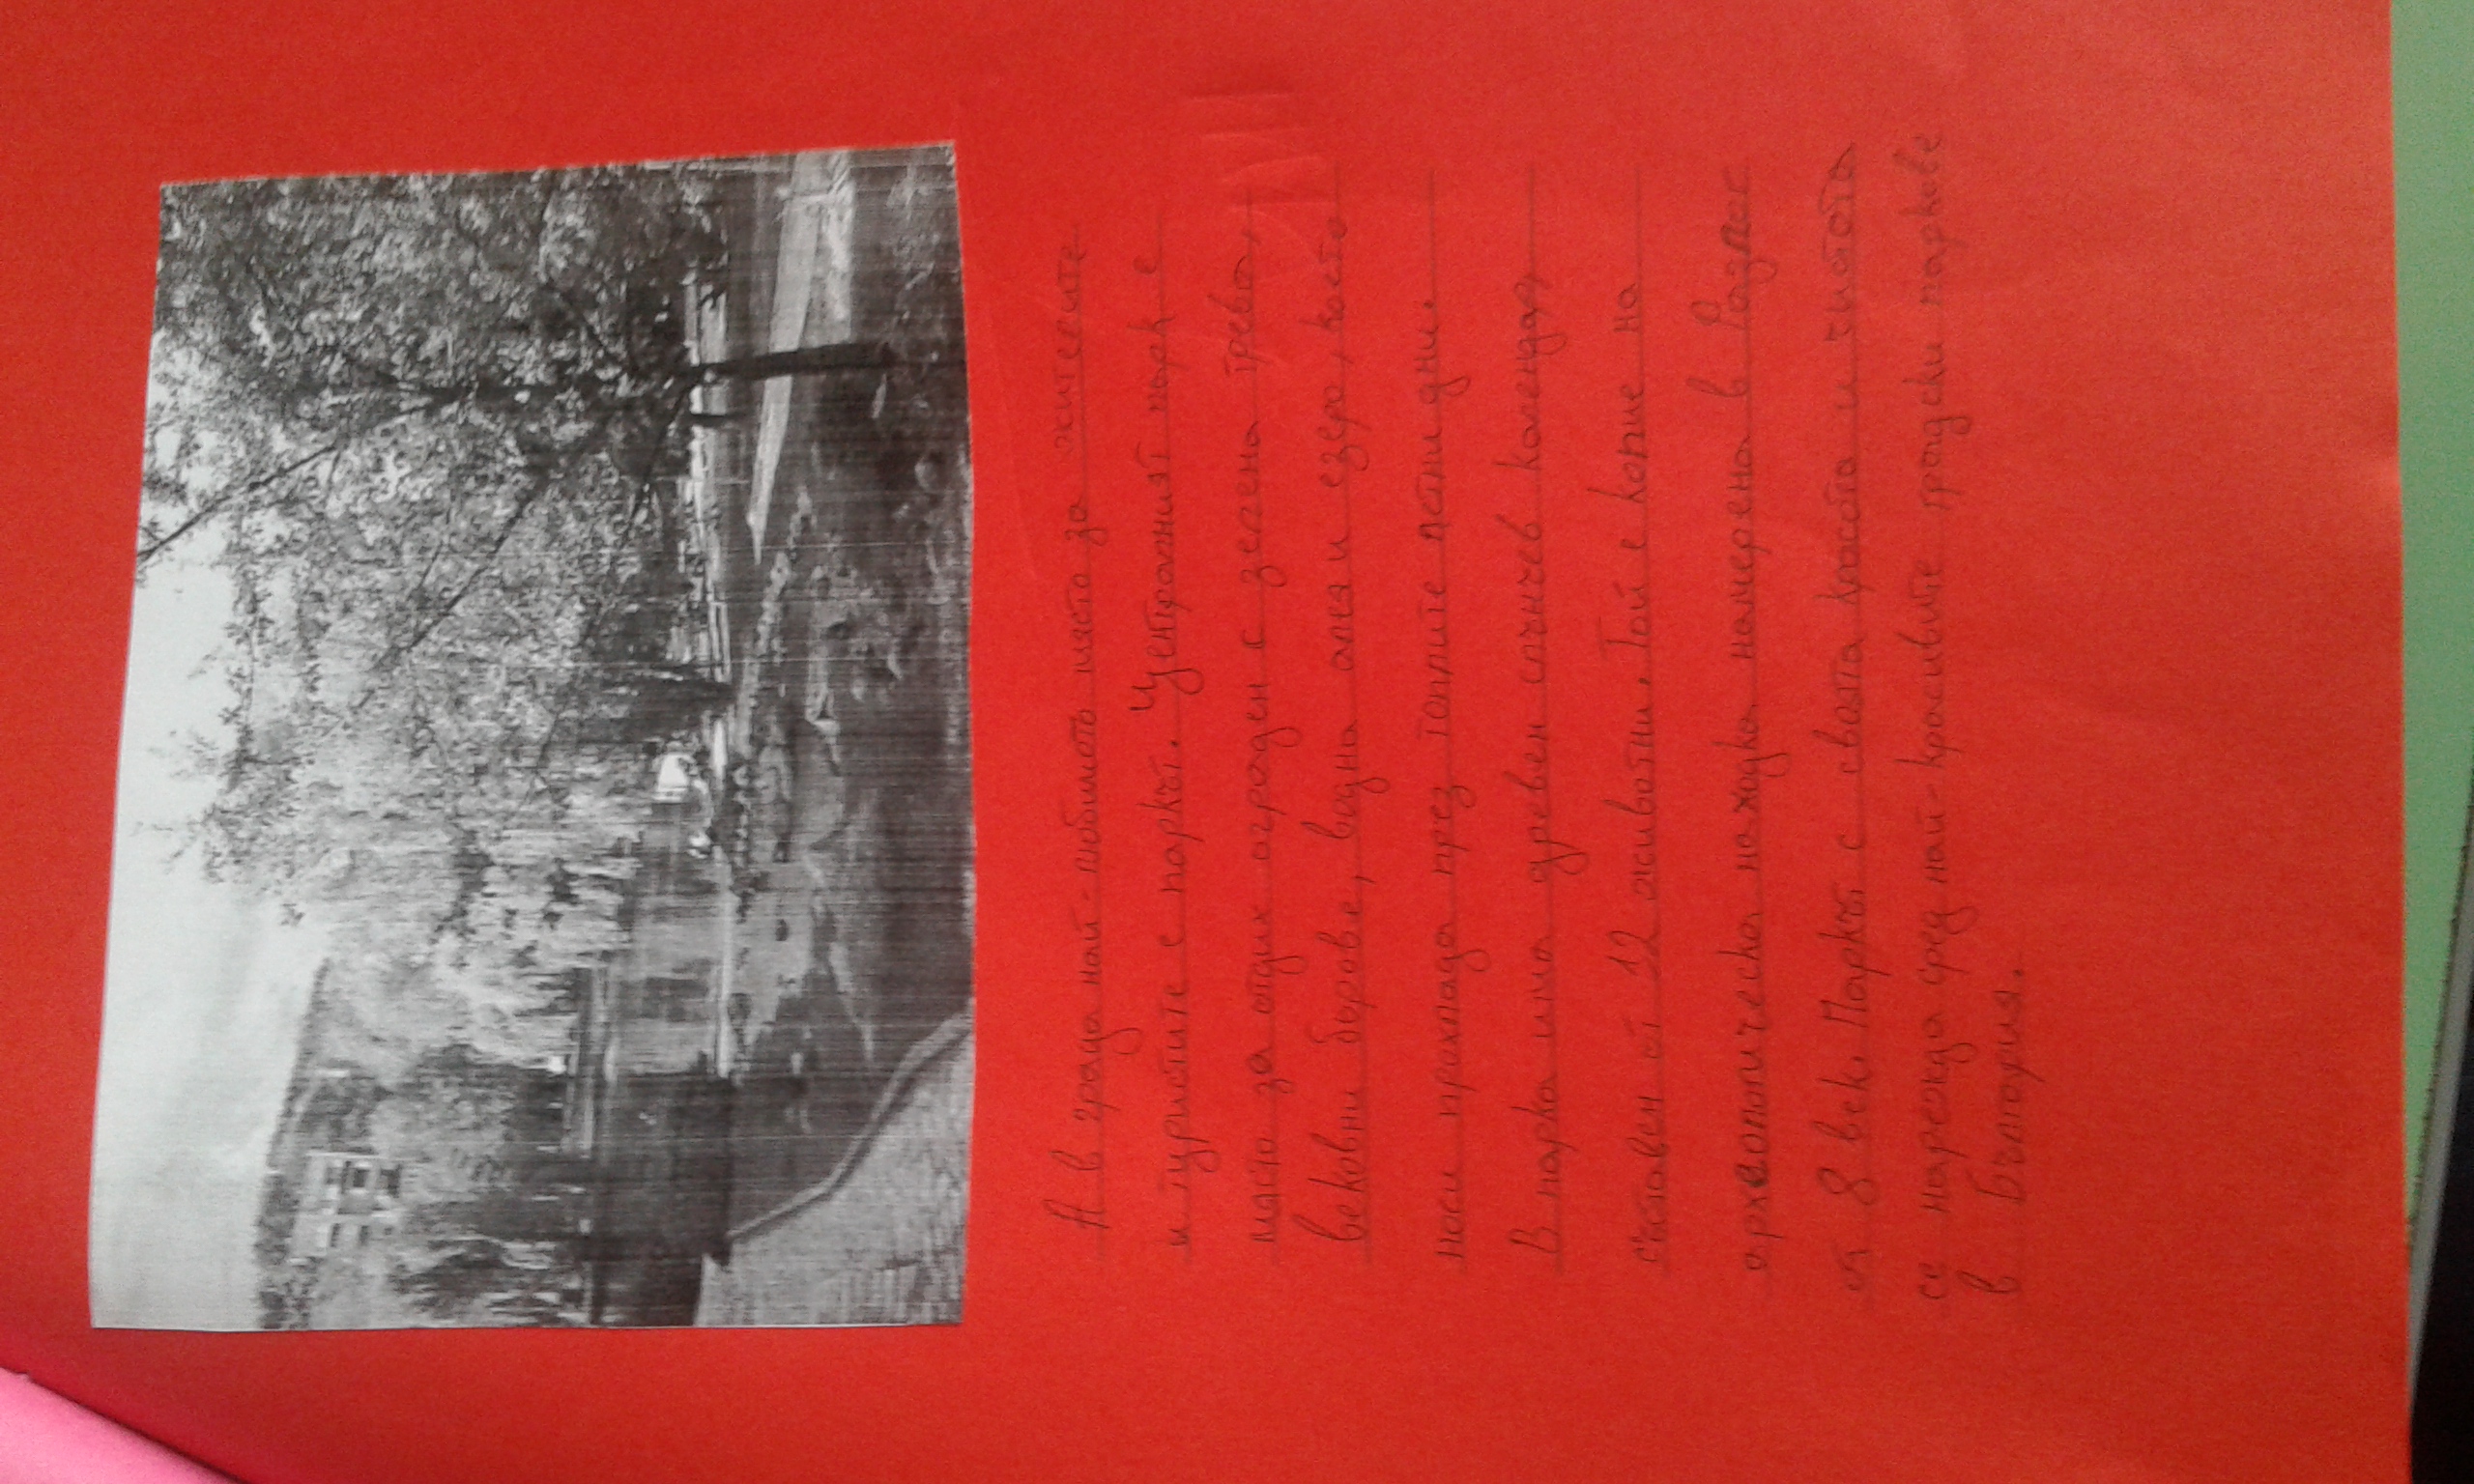 А в града най-любимото място за жителите
и туристите е паркът. Централният парк е
място за отдих ограден с зелена трева,
вековни борове, водна алея и езеро, което
носи прохлада през топлите летни дни.
В парка има древен слънчев календар,
съставен от 12 животни. Той е копие на
археологическа находка намерена в Разлог
от 8 век. Паркът с своята красота и чистота
се нарежда сред най-красивите градски паркове
в България.